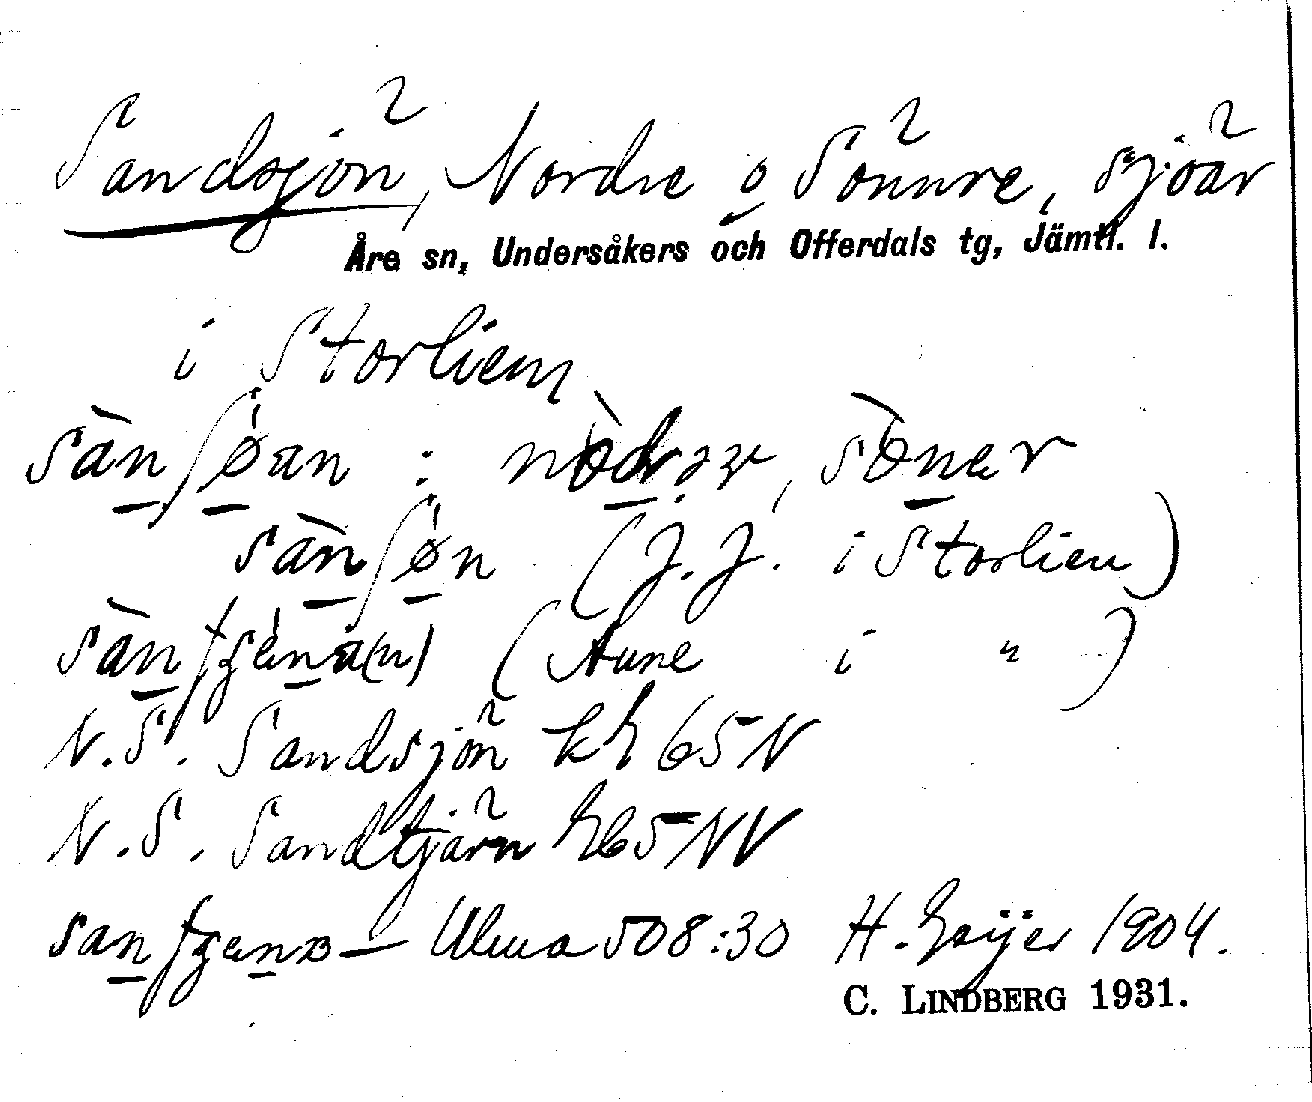 Sandsjön, Nordre o Sönnre, sjöar
Åre sn, Undersåkers och Offerdals tg, Jämtl. l.
i Storlien
sànʃøan : nòdrar, sònar
sànʃøn (J. J. i Storlien)
(Aune i ")
N. S. Sandsjön 65 N
N. S. Sandtjärn 65 NV
Ulma 508:30 H. Geijer 1904.
C. LINDBERG 1931.